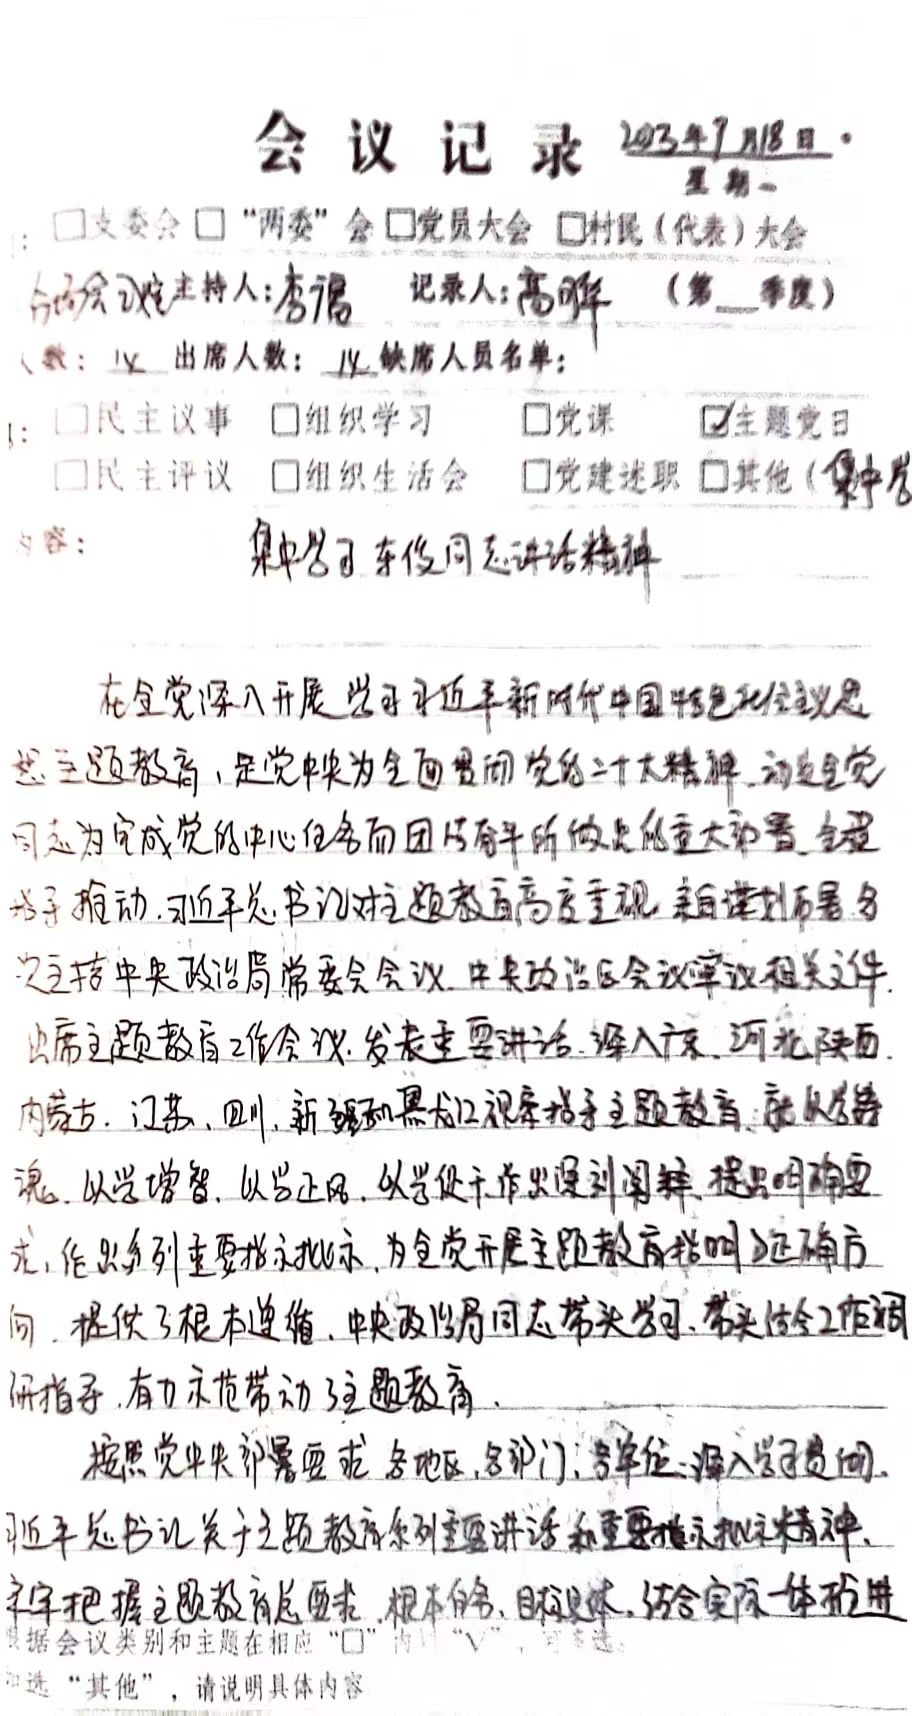 会议记录 2023年9月18日
星期一
：□支委会 □“两委”会 □党员大会 □村民（代表）大会
主持人：李福 记录人：高晖 （第__季度）
人数：14 出席人数：14 缺席人员名单：
：□民主议事 □组织学习 □党课 ☑主题党日
□民主评议 □组织生活会 □党建述职 □其他（集中学
内容：集中学习东俊同志讲话精神
在全党深入开展学习习近平新时代中国特色社会主义思
想主题教育，是党中央为全面贯彻党的二十大精神、动员全党
同志为完成党的中心任务而团结奋斗所做出的重大部署、全程
指导推动.习近平总书记对主题教育高度重视,亲自谋划部署多
次主持中央政治局常委会会议、中央政治局会议审议相关文件.
出席主题教育工作会议.发表重要讲话.深入广东、河北陕西.
内蒙古.江苏、四川、新疆和黑龙江视察指导主题教育、就以学铸
魂、以学增智、以学正风、以学促干作出深刻阐释、提出明确要
求,作出系列重要指示批示,为全党开展主题教育指明了正确方
向、提供了根本遵循.中央政治局同志带头学习、带头结合工作调
研指导.有力示范带动了主题教育.
按照党中央部署要求各地区.各部门、各单位、深入学习贯彻.
习近平总书记关于主题教育系列重要讲话和重要指示批示精神、
牢牢把握主题教育总要求.根本任务、目标具体.结合实际一体推进
根据会议类别和主题在相应“□”内划“√”，可多选。
如选“其他”，请说明具体内容